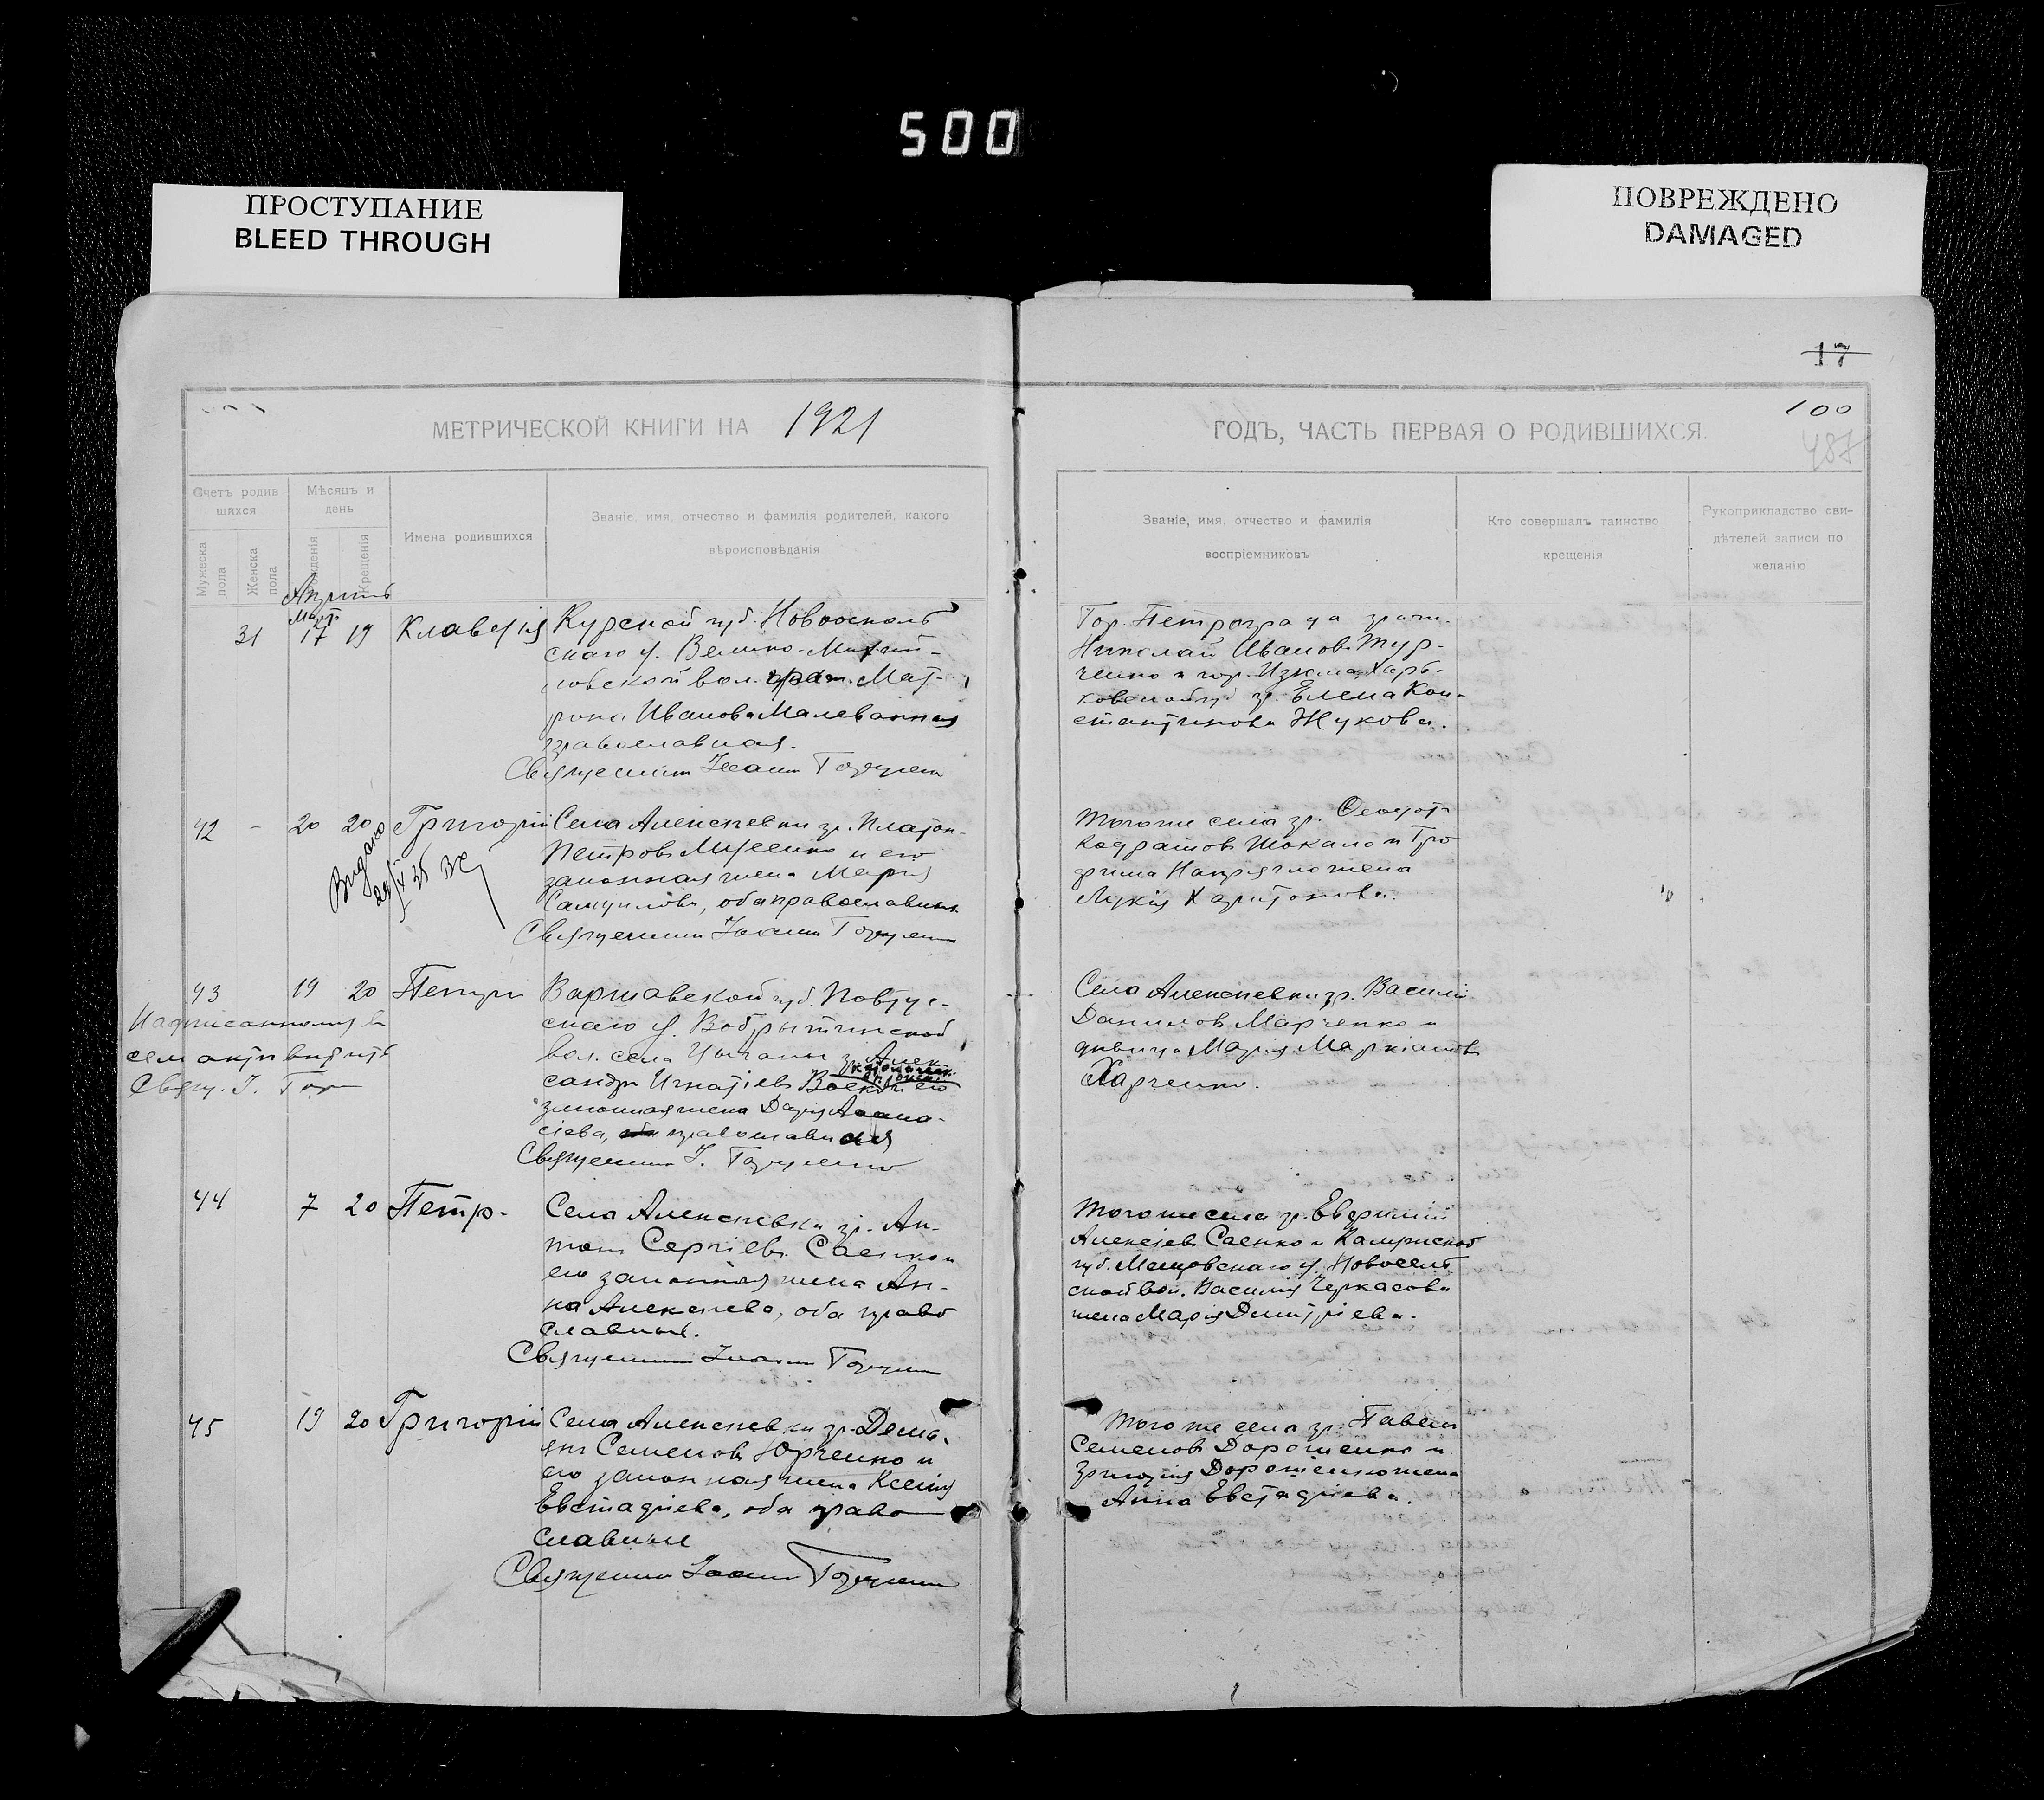 500
ПРОСТУПАНИЕ
BLEED THROUGH
ПОВРЕЖДЕНО
DAMAGED
17
100
487
МЕТРИЧЕСКОЙ КНИГИ НА 1921
ГОДЪ, ЧАСТЬ ПЕРВАЯ О РОДИВШИХСЯ.
Счетъ родив
шихся
Мужеска пола
Женска пола
Мѣсяцъ и
день
Рожденія
Крещенія
Имена родившихся
Званіе, имя, отчество и фамилія родителей, какого
вѣроисповѣданія
Званіе, имя, отчество и фамилія
воспріемниковъ
Кто совершалъ таинство
крещенія
Рукоприкладство сви-
дѣтелей записи по
желанію
Апрѣль
Мартъ
31 17 19 Клавдія
Курской губ. Новооскол
скаго у. Велико-Михай-
ловской вол. граж. Мат-
рона Иванова Малеванная
православная.
Священникъ Іоаннъ
Гор. Петрограда граж.
Николай Иванов Тур-
ченко и гор. Изюма Харь-
ковской губ. гр. Елена Кон-
стантинова Жукова.
42 - 20 20 Григорій
Видано
Села Алексѣевки гр. Платон
Петровъ и его
законная жена Марія
Самуилова, оба православные
Священникъ Іоаннъ
Того же села гр. Ѳеодот
Шокало и Тро
фима жена
Лукія Харитонова.
43 19 20 Петръ
сем актъ
Свящ. І.
Варшавской губ.
скаго у.
вол. села гр. Алек
сандръ Игнатіевъ его
законная жена Дарія Аѳана-
сіева, православная
Священникъ І.
Села Алексѣевки гр. Василій
Данилов Марченко и
дѣвица Марія Маркіанова
Харченко.
44 7 20 Петр.
Села Алексѣевки гр. Ан-
тон Сергіев Саенко и
его законная жена Ан-
на Алексѣева, оба право
славные.
Священникъ Іоаннъ
Того же села гр. Евфимій
Алексѣевъ Саенко и Калужской
губ. Мещовскаго у. Новосел
ской вол. Василія Черкасова
жена Марія Димитріева.
45 19 20 Григорій
Села Алексѣевки гр. Деми-
ян Семенов Юрченко и
его законная жена Ксенія
Евстафіева, оба право
славные
Священникъ Іоаннъ
Того же села гр. Павел
Семенов Дорошенко и
Григорія Дорошенко жена
Анна Евстафіева.